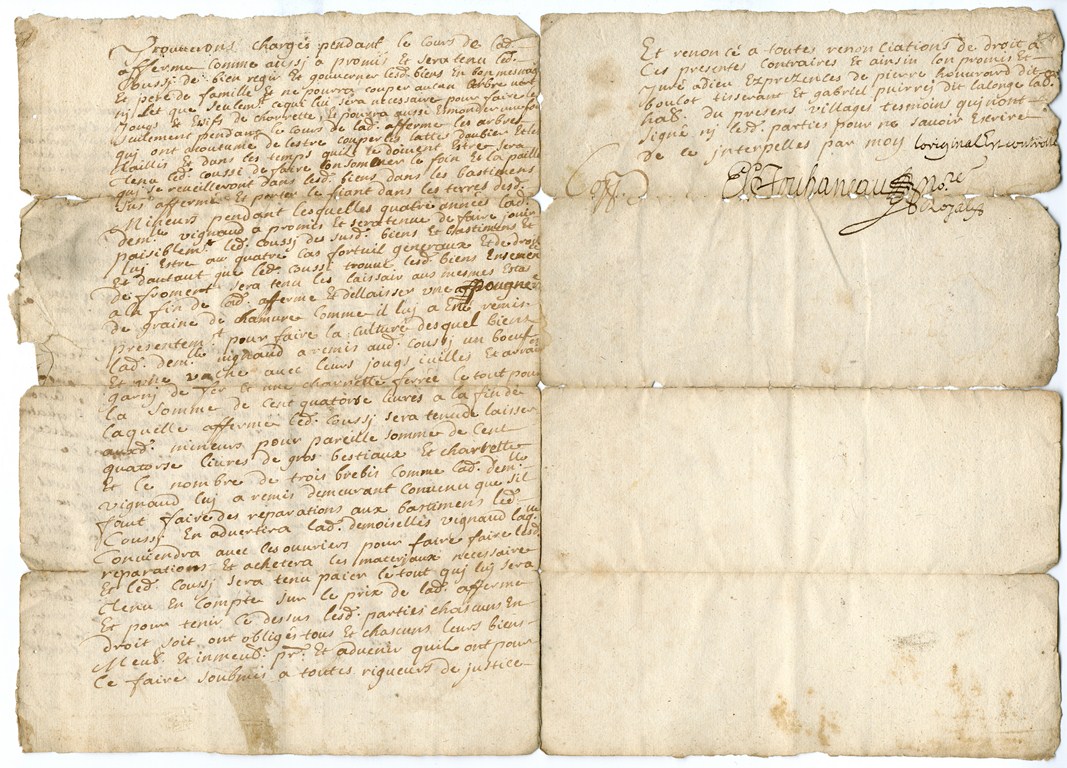 trouverons chargés pendant le cours de lad.
afferme comme aussj a promis Et sera tenu led.
Coussj de bien regir Et gouverner lesd. biens En bon mesnag
Et pere de famille Et ne pourra couper aucun Arbre vert
nj Let que seulemt. ce quj luj sera necessaire pour faire les
Jougs Et Esifs de charrette Et pourra aussi Emonder une fois
seulement pendant le cours de lad. afferme les arbres
quj ont acoutume de lestre couper les lattes daubier Et les
taillis Et dans les temps quils le doivent Estre sera
tenu led. coussi de faire consomer le foin Et la paille
quj se reveilleront dans lesd. biens dans les bastimens
afferme Et porter le fiant dans les terres desd.
Mineurs pendant lesquelles quatre années lad.
dem.lle vignaud a promis Et sera tenue de faire jouir
paisiblemt. led. coussj des susd. biens Et bastimens Et
lus Estre au quatre cas fortuit generaux Et de droit
Et dautant que led. coussi trouve lesd. biens Ensemen
de froment sera tenu les laissair aus mesmes Estas
a la fin de lad. afferme Et dellaisser une
de graine de chamure comme il luj a Ete remin
presentemt. pour faire la culture desquel biens
lad. dem.lle vignaud a remis aud. coussj un boeuf
Et une vache avec leurs jougs juilles Et
garnj de fer Et une charrette ferrée le tout pour
la somme de cent quatorse livres a la fin de
laquelle afferme led. coussj sera tenu de laisser
auxd. mineurs pour pareille somme de cent
quatorse livres de gros bestiaux Et charrette
Et le nombre de trois brebis comme lad. dem.lle
vignaud luj a remis demeurant convenu que sil
faut faire des reparations aux bastimens led.
Coussj En advertira lad. demoiselle vignaud laq.lle
Conviendra avec les ouvriers pour faire faire lesd.
reparations Et achetera les materjaux necessaire
Et led. coussj sera tenu paier le tout quj luj sera
tenu En compte sur le prix de lad. afferme
Et pour tenir ce dessus lesd. parties chascuns En
droit soit ont obligés tous Et chascuns leurs biens
Meub. Et inmeub. pr. Et advenir quils ont pour
ce faire soubmis a toutes rigueurs de justice
Et renoncé a toutes renonciations de droit a
Ces presentes Contraires Et ainsin lon promis Et
Juré a dieu Ez prezences de pierre hounrard dit
boulot tisserant Et gabriel puirres dit lalonge lab.
hab. du presens villages tesmoins quj nont
signé nj lesd. parties pour ne savoir Escrire
de ce interpelles par moy Loriginal Est controllé
No.re
Royal